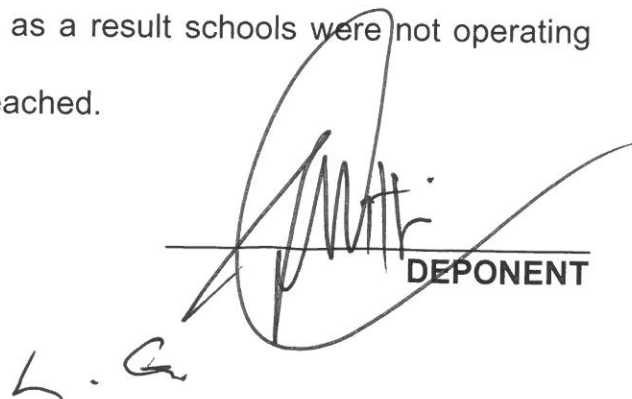 as a result schools were not operating
eached.
DEPONENT